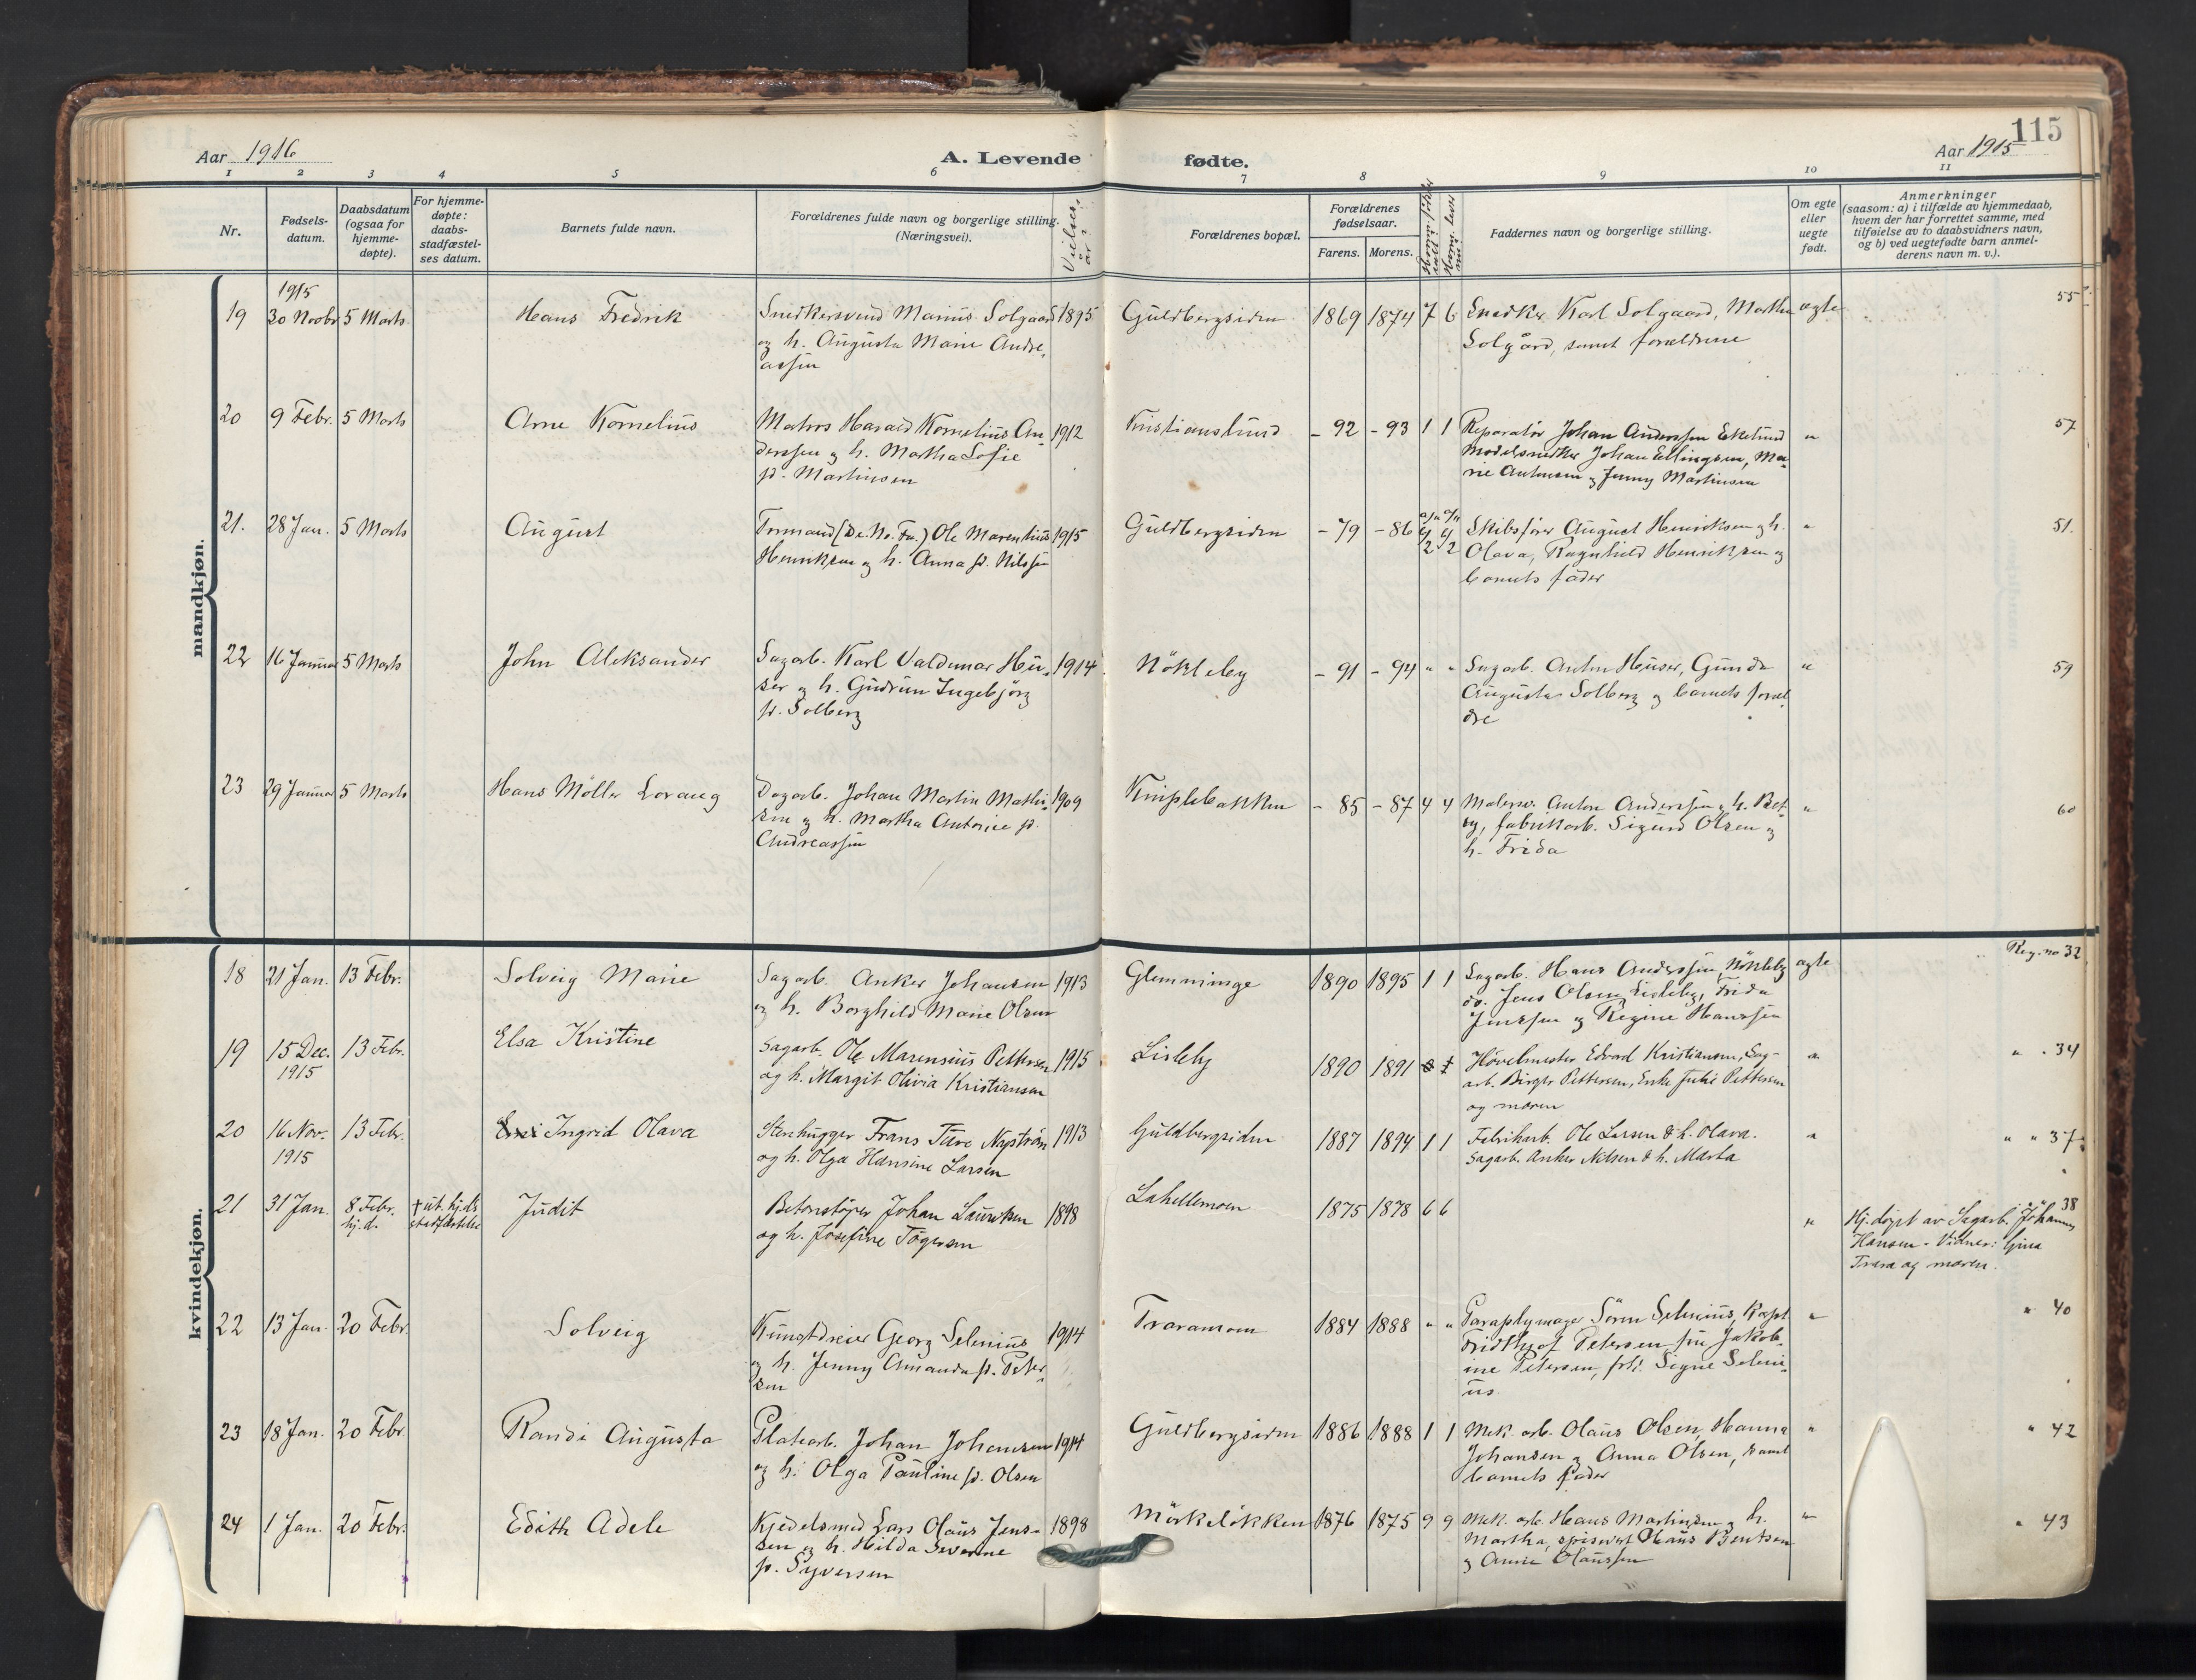 115
Aar 1916
A. Levende
fødte.
Aar 1915
1 2 3 4 5 6 7 8 9 10 11
Nr.
Fødsels-
datum.
Daabsdatum
(ogsaa for
hjemme-
døpte).
For hjemme-
døpte:
daabs-
stadfæstel-
ses datum.
Barnets fulde navn.
Forældrenes fulde navn og borgerlige stilling.
(Næringsvei).
Vielses-
år?
Forældrenes bopæl.
Forældrenes
fødselsaar.
Farens. Morens.
Faddernes navn og borgerlige stilling.
Om egte
eller
uegte
født.
Anmerkninger
(saasom: a) i tilfælde av hjemmedaab,
hvem der har forrettet samme, med
tilføielse av to daabsvidners navn,
og b) ved uegtefødte barn anmel-
derens navn m. v.).
mandkjøn.
1915
19 30 Novbr 5 Marts Hans Fredrik Snedkersvend Marius Solgaard 1895 Guldbergsiden 1869 1874 7 6 Snedker Karl Solgaard, Martha ægte 55
og h. Augusta Marie Andre- Solgård, samt forældrene
assen
20 9 Febr. 5 Marts Arne Kornelius Matros Harald Kornelius An- 1912 Kristianslund – 92 – 93 1 1 Reparatør Johan Anderssen Ekelund " 57
derssen og h. Martha Sofie Modelsnedker Johan Ellingsen, Ma-
f. Martinsen rie Antonsen og Jenny Martinsen
21. 28 Jan. 5 Marts August Formand (De. No. Fa.) Ole Marenhius 1915 Guldbergsiden – 79 – 86 Skibsfører August Henriksen og h. " 51.
Henriksen og h. Anna f. Nilssen Olava, Ragnhild Henriksen og
barnets fader
22 16 Januar 5 Marts John Aleksander Sagarb. Karl Valdemar Hu- 1914 Nökleby – 91 – 94 " " Sagarb. Anton Huser, Gunda " 59
ser og h. Gudrun Ingebjörg Augusta Solberg og barnets foræl-
f. Solberg dre
23 29 Januar 5 Marts Hans Möller Lorang Dagarb. Johan Martin Mathi- 1909 Kniplebakken – 85 – 87 4 4 Malersv. Anton Anderssen og h. Bet- " 60
sen og h. Martha Antonie f. sy, fabrikarb. Sigurd Olsen og
Andreassen h. Frida
kvindekjøn.
Reg. no 32
18 21 Jan. 13 Febr. Solveig Marie Sagarb. Anker Johansen 1913 Glemminge 1890 1895 1 1 Sagarb. Hans Anderssen, Nökleby ægte
og h. Borghild Marie Olsen do. Jens Olsen, Lisleby, Frida
Jenssen og Regine Hanssen
19 15 Dec. 13 Febr. Elsa Kristine Sagarb. Ole Marensius Pettersen 1915 Lisleby 1890 1891 Hövelmester Edvard Kristiansen, Sag- " " . 34
1915 og h. Margit Olivia Kristiansen arb. Birger Pettersen, Enke Julie Pettersen
og moren
20 16 Nov. 13 Febr. Ingrid Olava Stenhugger Frans Ture Nyström 1913 Guldbergsiden 1887 1894 1 1 Fabrikarb. Ole Larsen & h. Olava. " " " 37
1915 og h. Olga Hansine Larsen Sagarb. Anker Nilsen & h. Marta
21 31 Jan. 8 Febr. † ut. hj.ds. Judit Betonstøper Johan Lauritsen 1898 Lahellemoen 1875 1878 6 6 " Hj. døpt av Sagarb. Johannes 38
hj.d. stadfæstelse og h. Josefine Tögersen Hansen. Vidner: Gina
Trara og moren.
22 13 Jan. 20 Febr. Solveig Kunstdreier Georg Selenius 1914 Traramoen 1884 1888 " " Paraplymager Sörn Selenius, Kapt. " " 40
og h. Jenny Amanda f. Peter- Fridthjof Petersen, fru Jakob-
sen ine Petersen, frk. Signe Seleni-
us.
23 18 Jan. 20 Febr. Randi Augusta Platearb. Johan Johansen 1914 Guldbergsiden 1886 1888 1 1 Mek. arb. Olaus Olsen, Hanna " " 42
og h. Olga Pauline f. Olsen Johansen og Anna Olsen, samt
barnets fader
24 1 Jan. 20 Febr. Edith Adele Kjedelsmed Lars Olaus Jens- 1898 Mörkelökken 1876 1875 9 9 Mek. arb. Hans Martinsen og h. " " 43
sen og h. Hilda Severine Martha, spisevert Olaus Bentsen
f. Syversen og Anna Olaussen